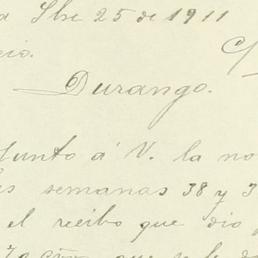 a Sbre 25 de 1911
cio.
Durango.
Junto á V. la no
semanas 38 y 3
el recibo que dio